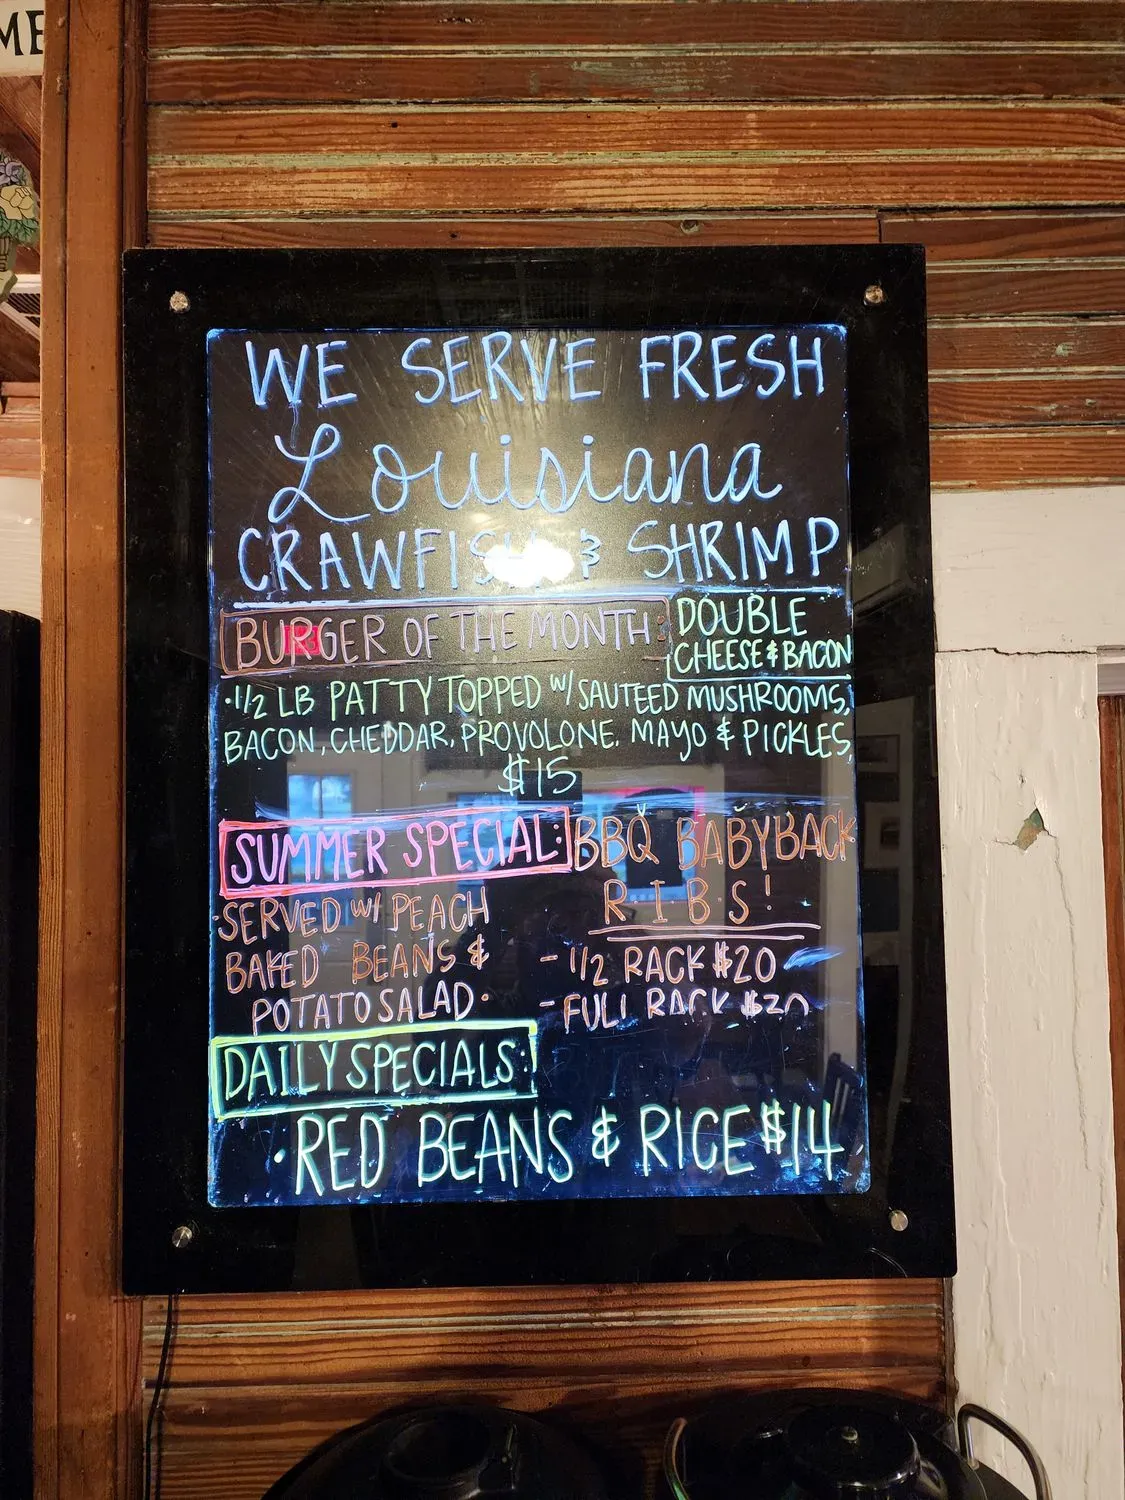 ME
WE SERVE FRESH
Louisiana
CRAWFISH & SHRIMP
BURGER OF THE MONTH: DOUBLE
CHEESE & BACON
·1/2 LB PATTY TOPPED W/ SAUTEED MUSHROOMS,
BACON, CHEDDAR, PROVOLONE, MAYO & PICKLES,
$15
SUMMER SPECIAL: BBQ BABYBACK
RIBS!
·SERVED W/ PEACH
BAKED BEANS &
POTATO SALAD·
- 1/2 RACK $20
- FULL RACK
DAILY SPECIALS:
·RED BEANS & RICE $14